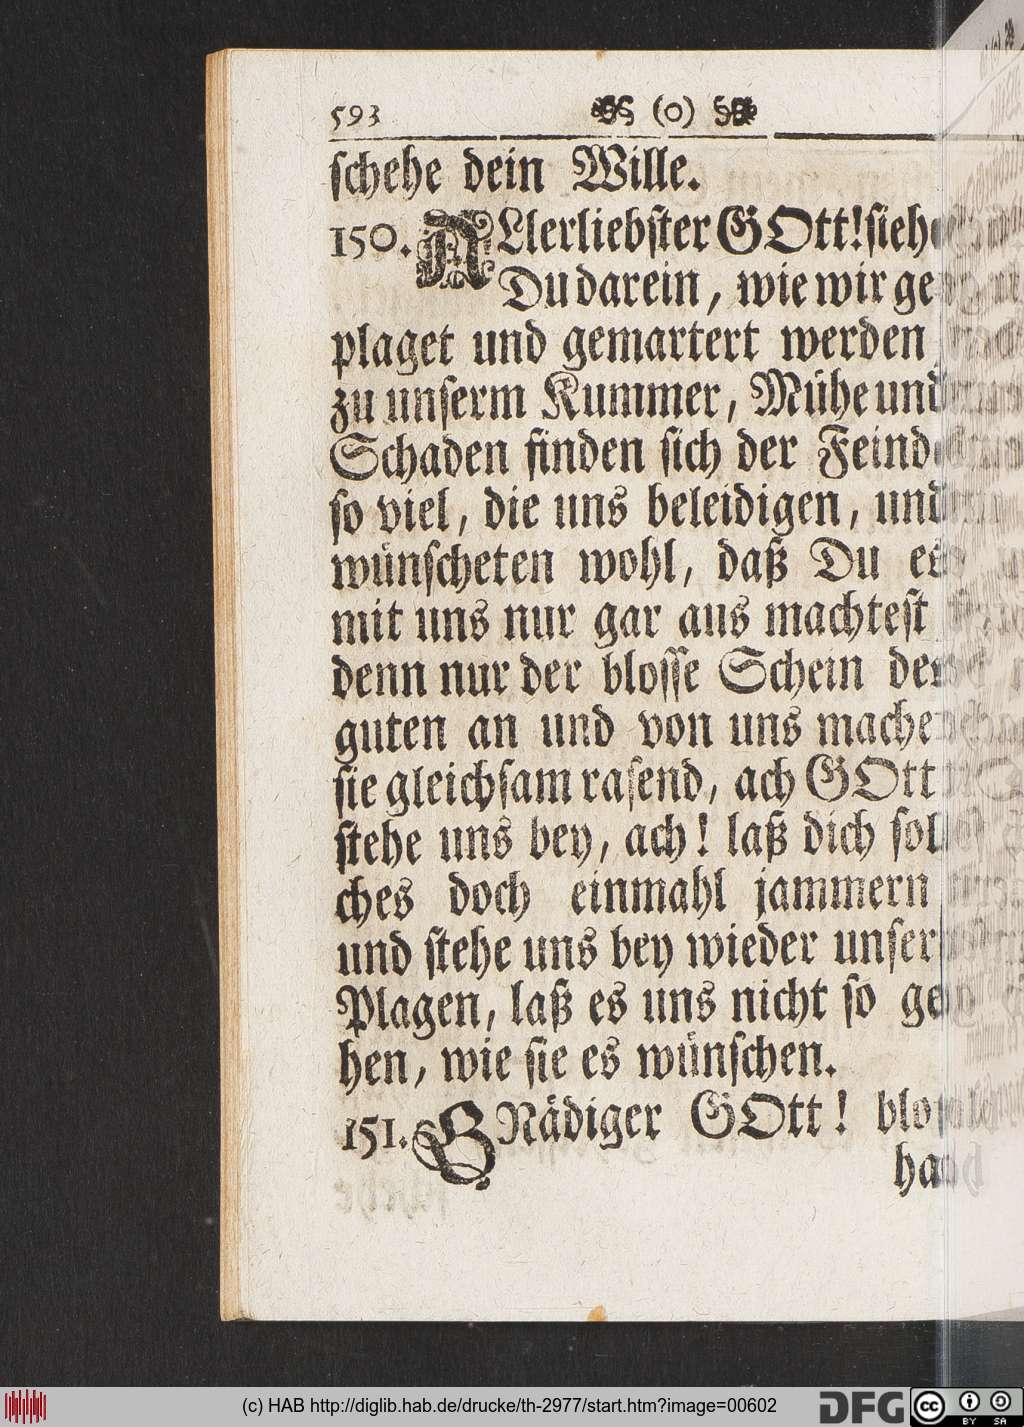 593 (o)
schehe dein Wille.
150. ALlerliebster GOtt! sieh
Du darein, wie wir ge
plaget und gemartert werden
zu unserm Kummer, Mühe und
Schaden finden sich der Feind
so viel, die uns beleidigen, und
wünscheten wohl, daß Du es
mit uns nur gar aus machtest
denn nur der blosse Schein des
guten an und von uns mache
sie gleichsam rasend, ach GOtt
stehe uns bey, ach! laß dich sol
ches doch einmahl jammern
und stehe uns bey wieder unser
Plagen, laß es uns nicht so ge
hen, wie sie es wünschen.
151. GNädiger GOtt! blo
ha
(c) HAB http://diglib.hab.de/drucke/th-2977/start.htm?image=00602
DFG
cc
BY SA